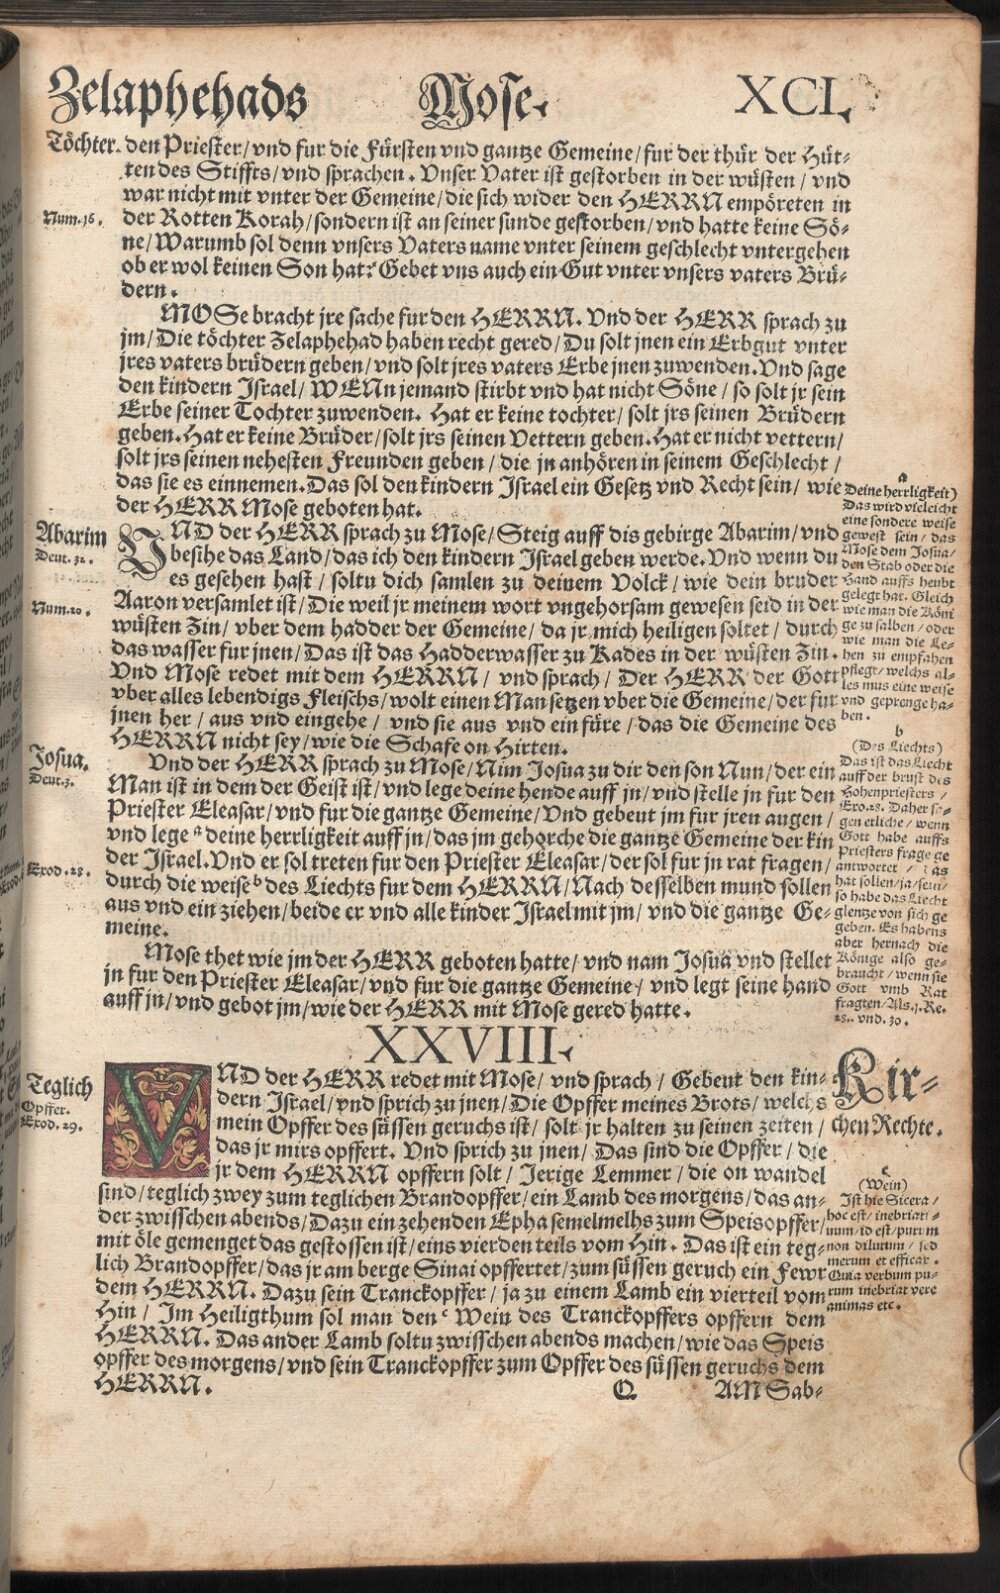 Zelaphehads Mose. XCI.
Töchter.
den Priester/ vnd fur die Fürsten vnd gantze Gemeine/ fur der thür der Hüt-
ten des Stiffts/ vnd sprachen. Vnser Vater ist gestorben in der wüsten / vnd
war nicht mit vnter der Gemeine/ die sich wider den HERRN empöreten in
Num.16.
der Rotten Korah/ sondern ist an seiner sunde gestorben/ vnd hatte keine Sö-
ne/ Warumb sol denn vnsers Vaters name vnter seinem geschlecht vntergehen
ob er wol keinen Son hat? Gebet vns auch ein Gut vnter vnsers vaters Brü-
dern.
MOSe bracht jre sache fur den HERRN. Vnd der HERR sprach zu
jm/ Die töchter Zelaphehad haben recht gered/ Du solt jnen ein Erbgut vnter
jres vaters brüdern geben/ vnd solt jres vaters Erbe jnen zuwenden. Vnd sage
den kindern Israel/ WENn jemand stirbt vnd hat nicht Söne/ so solt jr sein
Erbe seiner Tochter zuwenden. Hat er keine tochter/ solt jrs seinen Brüdern
geben. Hat er keine Brüder/ solt jrs seinen Vettern geben. Hat er nicht vettern/
solt jrs seinen nehesten Freunden geben/ die jn anhören in seinem Geschlecht /
das sie es einnemen. Das sol den kindern Israel ein Gesetz vnd Recht sein/ wie
der HERR Mose geboten hat.
Abarim
Deut. 32.
VND der HERR sprach zu Mose/ Steig auff dis gebirge Abarim/ vnd
besihe das Land/ das ich den kindern Israel geben werde. Vnd wenn du
es gesehen hast / soltu dich samlen zu deinem Volck/ wie dein bruder
Num.20.
Aaron versamlet ist/ Die weil jr meinem wort vngehorsam gewesen seid in der
wüsten Zin/ vber dem hadder der Gemeine/ da jr mich heiligen soltet / durch
das wasser fur jnen/ Das ist das Hadderwasser zu Kades in der wüsten Zin.
Vnd Mose redet mit dem HERRN/ vnd sprach/ Der HERR der Gott
vber alles lebendigs Fleischs/ wolt einen Man setzen vber die Gemeine/ der fur
jnen her / aus vnd eingehe / vnd sie aus vnd ein füre / das die Gemeine des
HERRN nicht sey/ wie die Schafe on Hirten.
Josua.
Deut.3.
Vnd der HERR sprach zu Mose/ Nim Josua zu dir den son Nun/ der ein
Man ist in dem der Geist ist/ vnd lege deine hende auff jn/ vnd stelle jn fur den
Priester Eleasar/ vnd fur die gantze Gemeine/ Vnd gebeut jm fur jren augen /
vnd lege a deine herrligkeit auff jn/ das jm gehorche die gantze Gemeine der kin
Exod.28.
der Israel. Vnd er sol treten fur den Priester Eleasar/ der sol fur jn rat fragen/
durch die weise b des Liechts fur dem HERRN/ Nach desselben mund sollen
aus vnd ein ziehen/ beide er vnd alle kinder Israel mit jm/ vnd die gantze Ge-
meine.
Mose thet wie jm der HERR geboten hatte/ vnd nam Josua vnd stellet
jn fur den Priester Eleasar/ vnd fur die gantze Gemeine/ vnd legt seine hand
auff jn/ vnd gebot jm/ wie der HERR mit Mose gered hatte.
a
Deine herrligkeit)
Das wird vieleicht
eine sondere weise
gewest sein / das
Mose dem Josua/
den Stab oder die
Hand auffs heubt
gelegt hat. Gleich
wie man die Köni
ge zu salben / oder
wie man die Le-
hen zu empfahen
pflegt/ welchs al-
les mus eine weise
vnd geprenge ha-
ben.
b
(Des Liechts)
Das ist das Liecht
auff der brust des
Hohenpriesters /
Exo.28. Daher sa-
gen etliche / wenn
Gott habe auffs
Priesters frage ge
antwortet / das
hat sollen/ ja sein/
so habe das Liecht
glentze von sich ge
geben. Es habens
aber hernach die
Könige also ge-
braucht / wenn sie
Gott vmb Rat
fragten/ Als.1.Re.
28. vnd. 30.
XXVIII.
Teglich
Opffer.
Exod. 29.
VND der HERR redet mit Mose/ vnd sprach / Gebeut den kin-
dern Israel/ vnd sprich zu jnen/ Die Opffer meines Brots/ welchs
mein Opffer des süssen geruchs ist/ solt jr halten zu seinen zeiten /
das jr mirs opffert. Vnd sprich zu jnen/ Das sind die Opffer / die
jr dem HERRN opffern solt / Jerige Lemmer / die on wandel
sind/ teglich zwey zum teglichen Brandopffer/ ein Lamb des morgens/ das an-
der zwisschen abends/ Dazu ein zehenden Epha semelmelhs zum Speisopffer/
mit öle gemenget das gestossen ist/ eins vierden teils vom Hin. Das ist ein teg-
lich Brandopffer/ das jr am berge Sinai opffertet/ zum süssen geruch ein Fewr
dem HERRN. Dazu sein Tranckopffer / ja zu einem Lamb ein vierteil vom
Hin / Im Heiligthum sol man den c Wein des Tranckopffers opffern dem
HERRN. Das ander Lamb soltu zwisschen abends machen/ wie das Speis
opffer des morgens/ vnd sein Tranckopffer zum Opffer des süssen geruchs dem
HERRN.
Kir-
chen Rechte.
c
(Wein)
Ist hie Sicera /
hoc est/ inebriati-
uum/ id est/ purum
non dilutum / sed
merum et efficax.
Quia verbum pu-
rum inebriat vere
animas etc.
Q AM Sab-